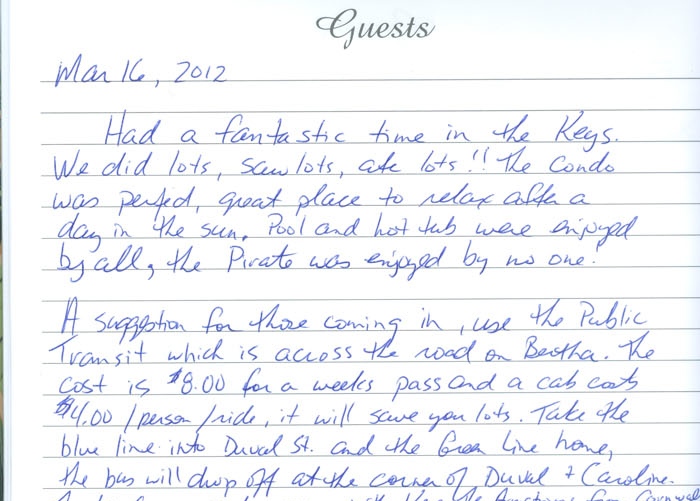 Guests
Mar 16, 2012
Had a fantastic time in the Keys.
We did lots, saw lots, ate lots!! The Condo
was perfect, great place to relax after a
day in the sun. Pool and hot tub were enjoyed
by all, the Pirate was enjoyed by no one!
A suggestion for those coming in, use the Public
Transit which is across the road on Bertha. The
cost is $8.00 for a weeks pass and a cab costs
$4.00 /person /ride, it will save you lots. Take the
blue line into Duval St. and the Green Line home,
the bus will drop off at the corner of Duval + Caroline.